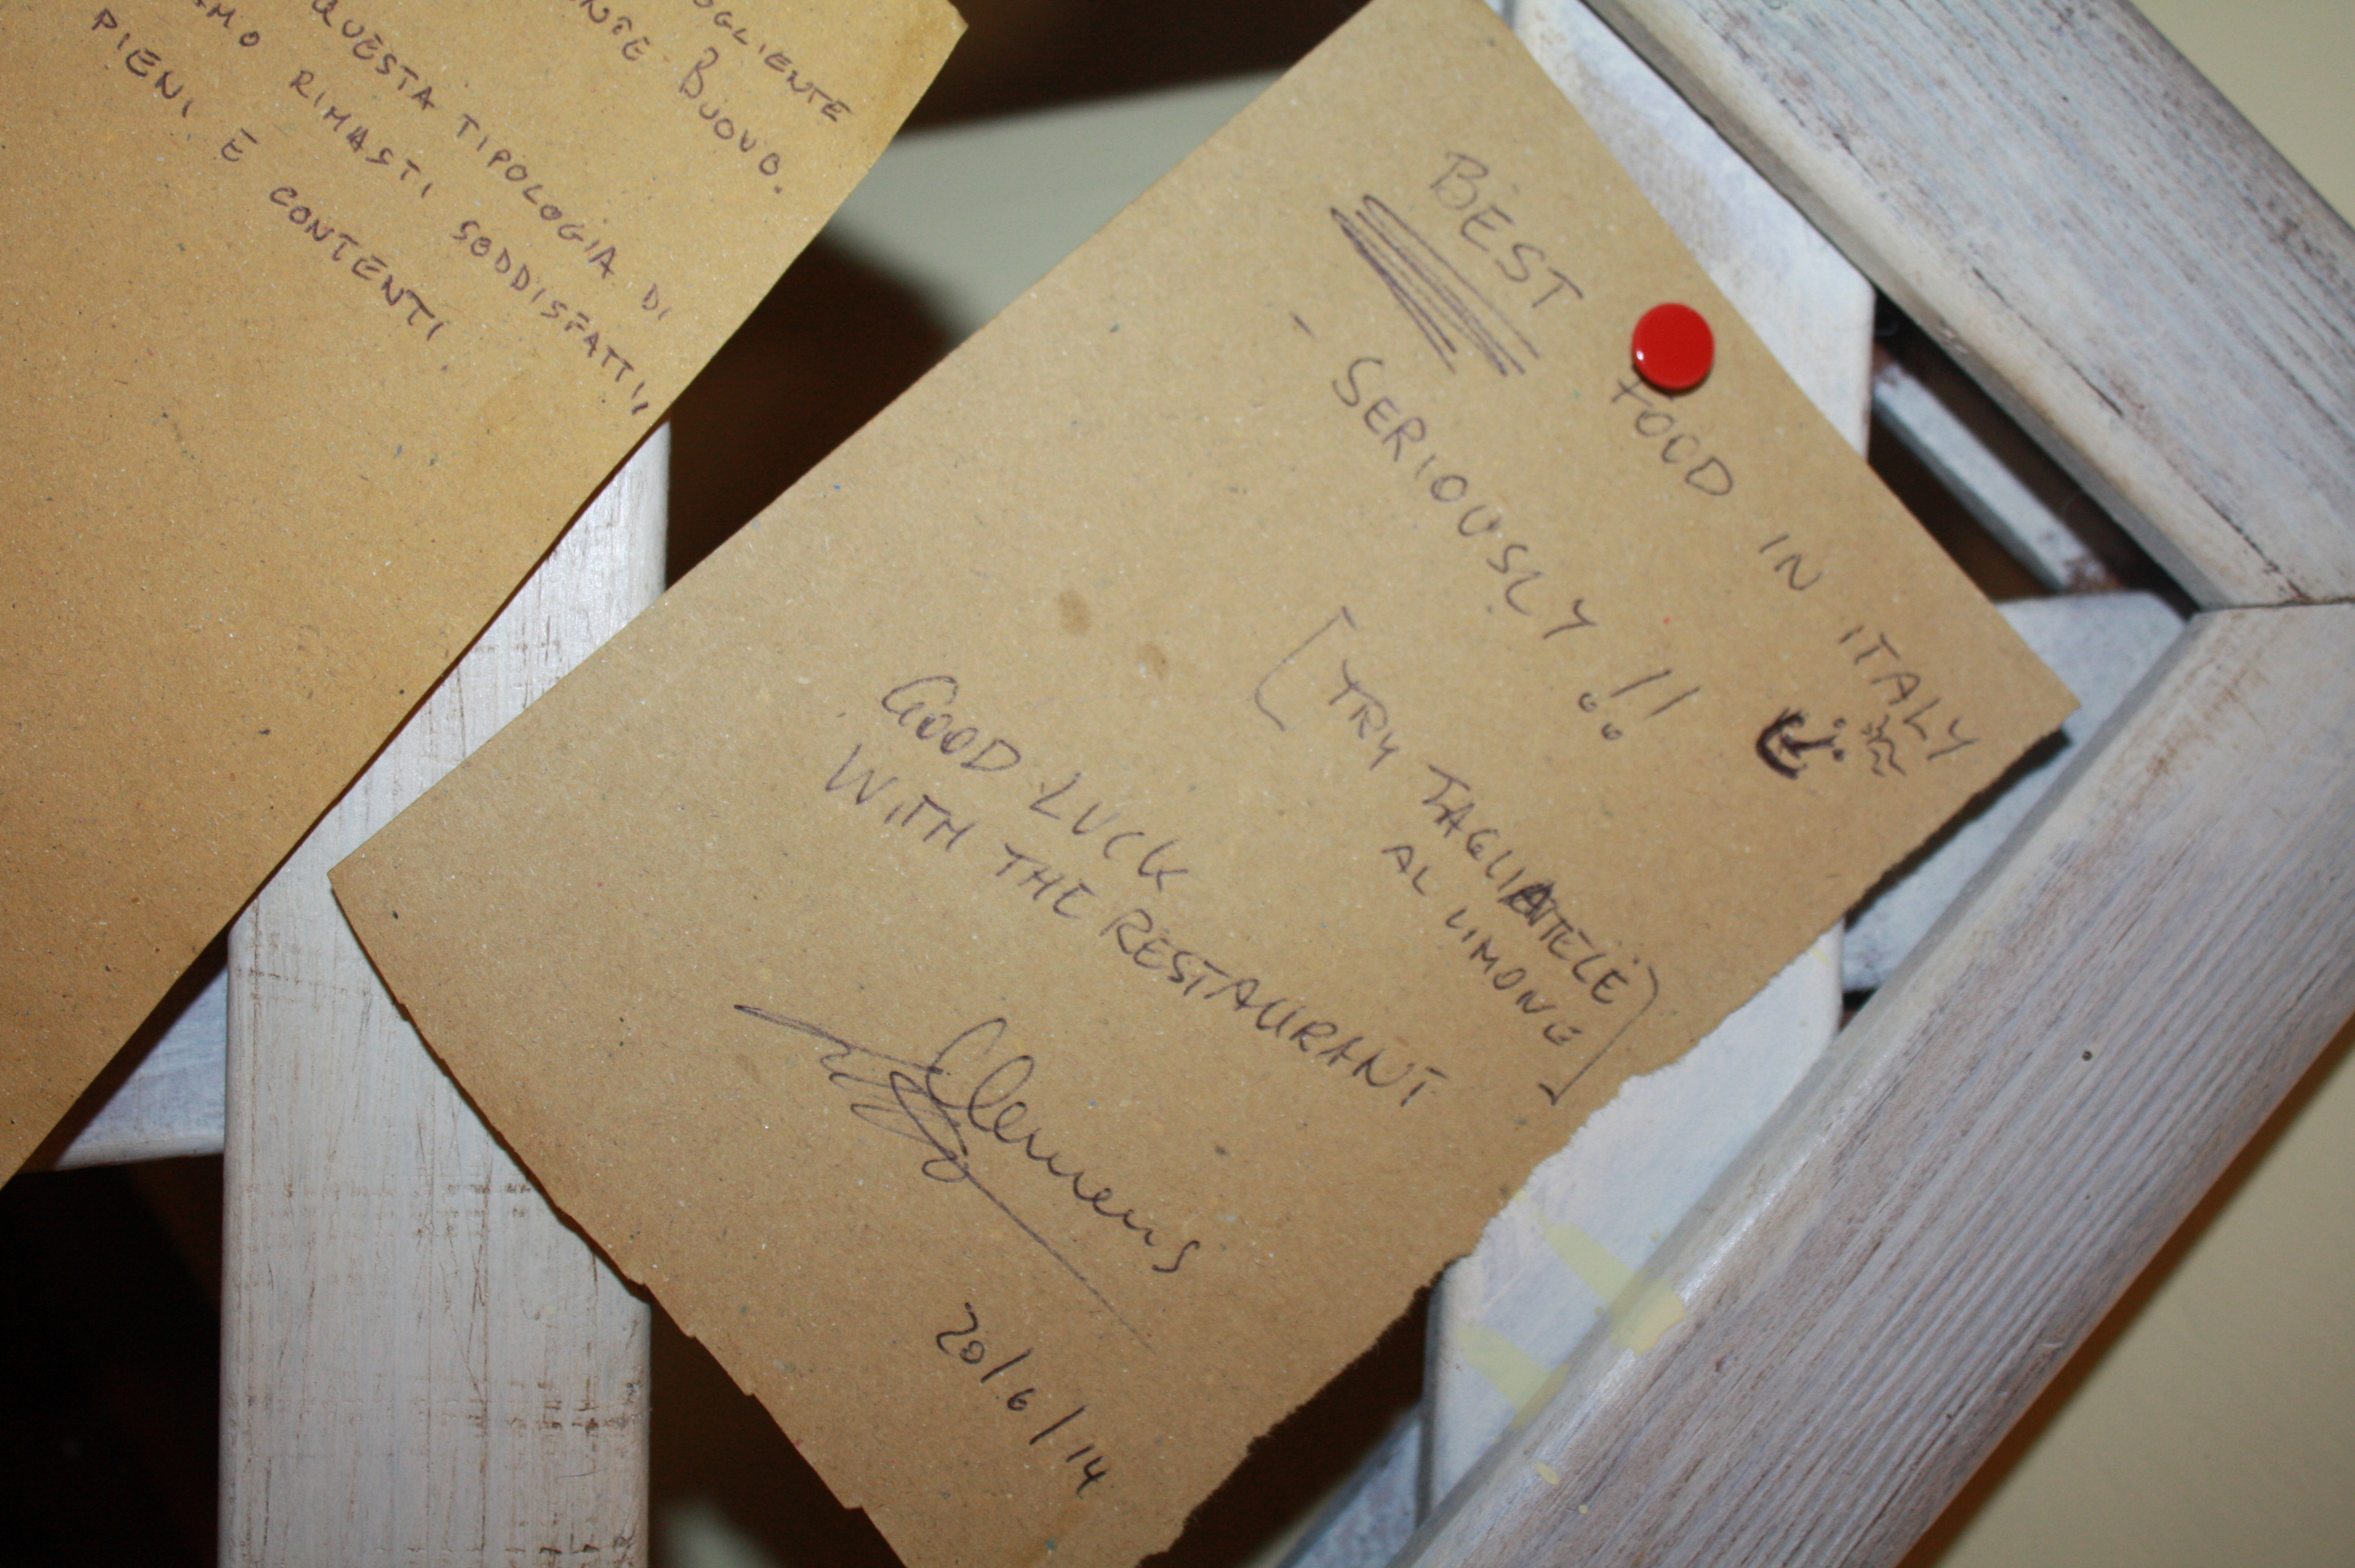 OGLIENTE
NTE BUONO.
QUESTA TIPOLOGIA DI
AMO RIMASTI SODDISFATTI,
PIENI E CONTENTI.
BEST FOOD IN ITALY
- SERIOUSLY!!
[TRY TAGLIATELE
AL LIMONE]
GOOD LUCK
WITH THE RESTAURANT
Clemens
20/6/14